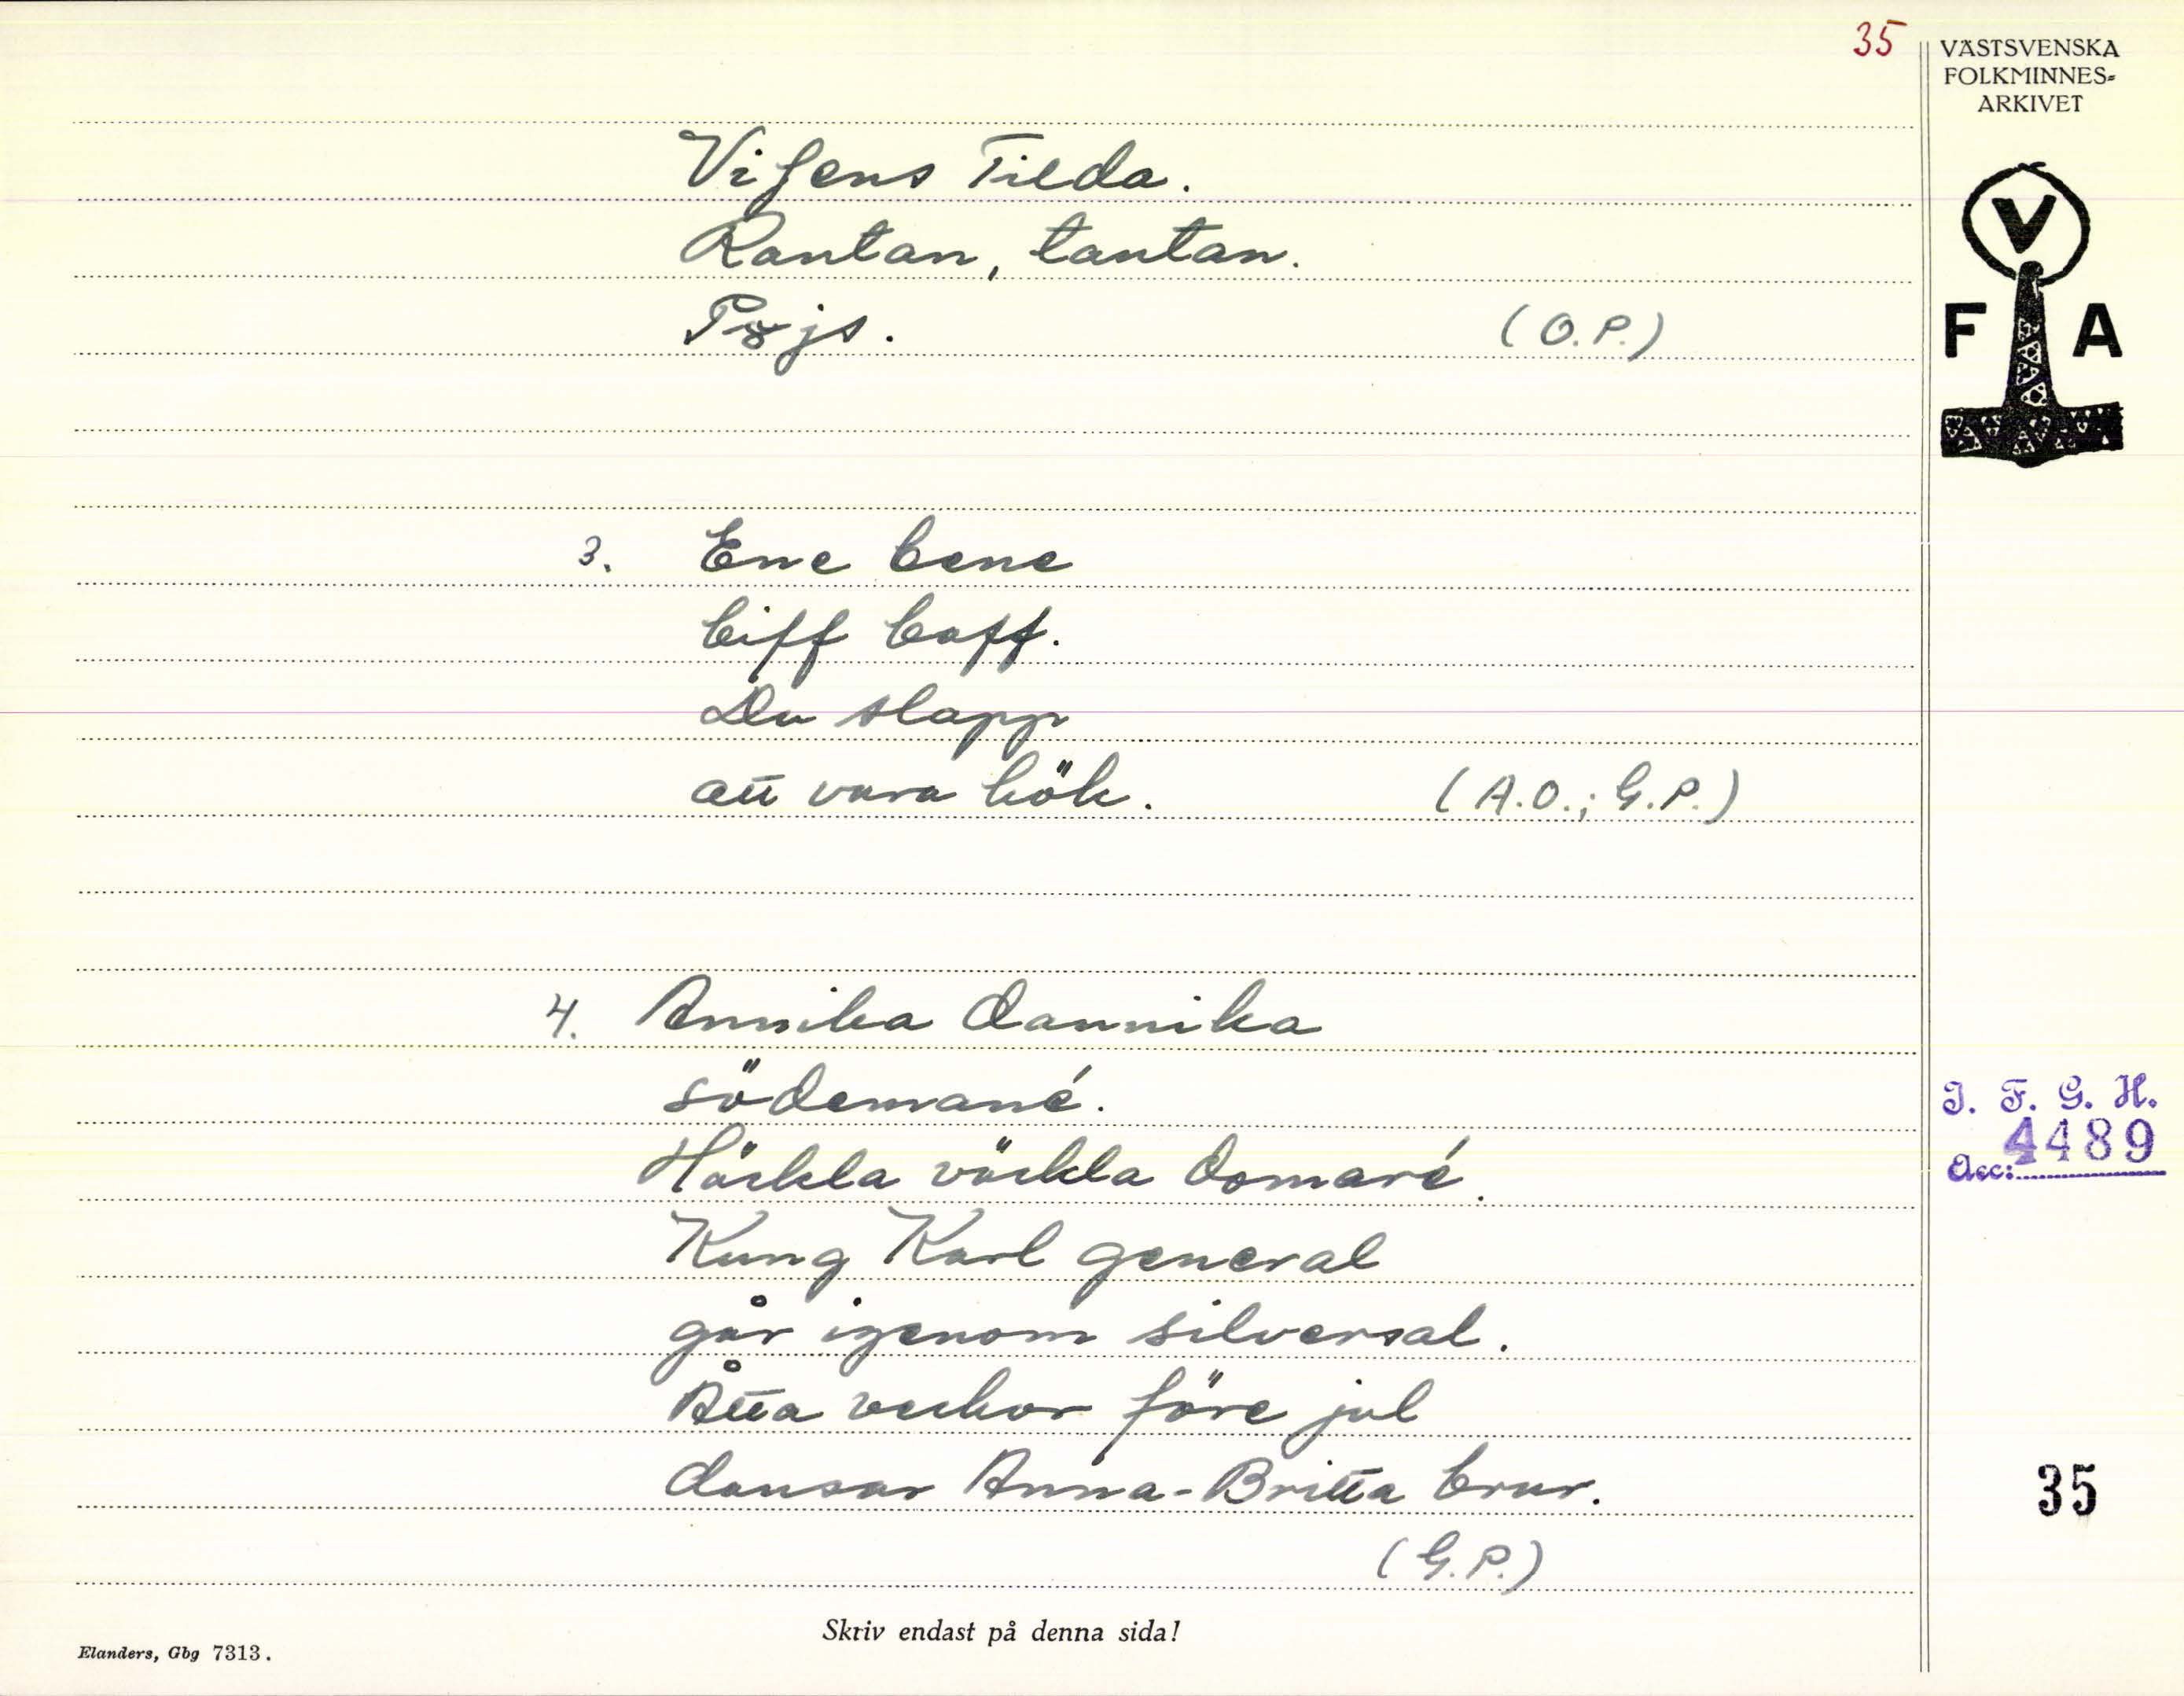 35
VÄSTSVENSKA
FOLKMINNES=
ARKIVET
V
F A
Vifens Tilda.
Rantan, tantan.
Pojs. (O.P.)
3. Ene bene
biff baff.
Du slapp
att vara hök. (A.O.; G.P.)
4. Annika dannika
södemané.
Häckla väckla domaré.
Kung Karl general
går igenom silversal.
Åtta veckor före jul
dansar Anna-Britta brur.
(G.P.)
I. F. G. H.
Acc: 4489
35
Skriv endast på denna sida!
Elanders, Gbg 7313.